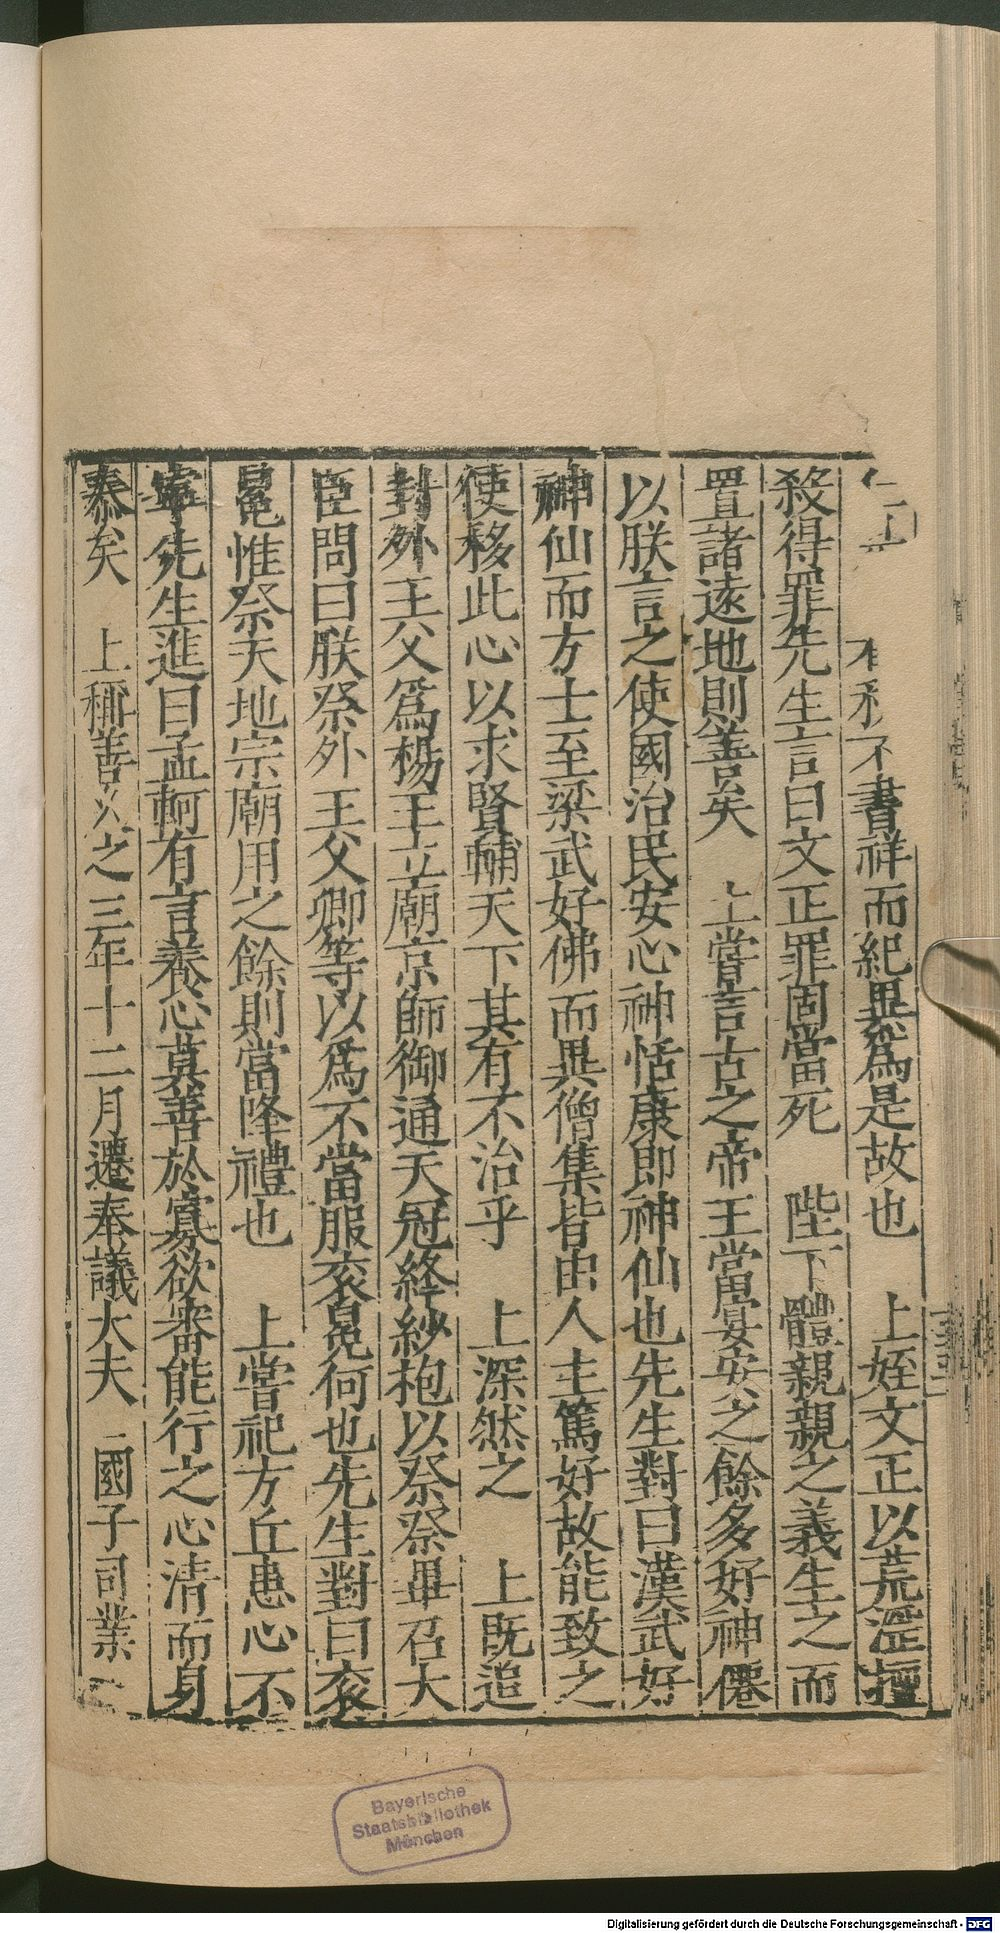 不書祥而紀異爲是故也　上姪文正以荒滛擅
殺得罪先生言曰文正罪固當死　陛下體親親之義生之而
置諸遠地則善矣　上嘗言古之帝王當宴安之餘多好神僊
以朕言之使國治民安心神恬康即神仙也先生對曰漢武好
神仙而方士至梁武好佛而異僧集皆由人主篤好故能致之
使移此心以求賢輔天下其有不治乎　上深然之　上既追
封外王父爲楊王立廟京師御通天冠絳紗袍以祭祭畢召大
臣問曰朕祭外王父卿等以爲不當服衮冕何也先生對曰衮
冕惟祭天地宗廟用之餘則當降禮也　上嘗祀方丘患心不
寧先生進曰孟軻有言養心莫善於寡欲審能行之心清而身
泰矣　上稱善久之三年十二月遷奉議大夫　國子司業
Bayerische
Staatsbibliothek
München
Digitalisierung gefördert durch die Deutsche Forschungsgemeinschaft - DFG